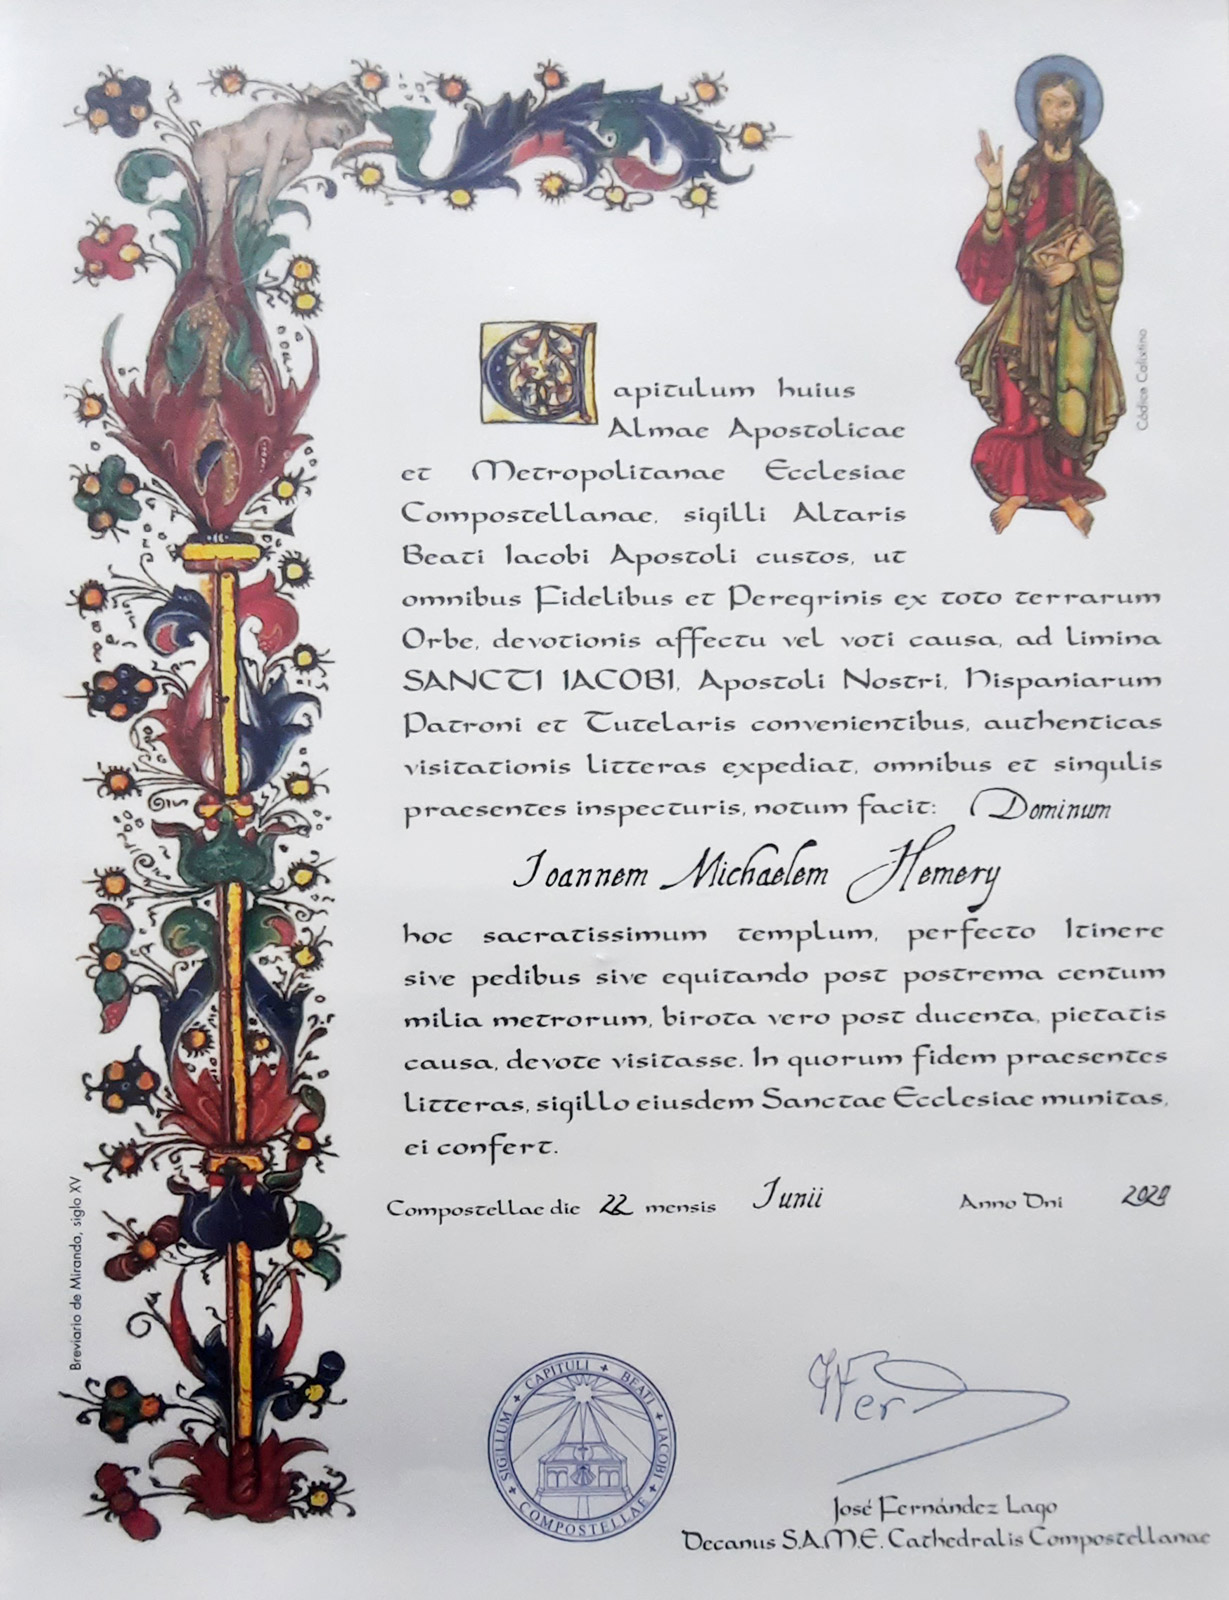 Capitulum huius
Almae Apostolicae
et Metropolitanae Ecclesiae
Compostellanae, sigilli Altaris
Beati Iacobi Apostoli custos, ut
omnibus Fidelibus et Peregrinis ex toto terrarum
Orbe, devotionis affectu vel voti causa, ad limina
SANCTI IACOBI, Apostoli Nostri, Hispaniarum
Patroni et Tutelaris convenientibus, authenticas
visitationis litteras expediat, omnibus et singulis
praesentes inspecturis, notum facit: Dominum
Ioannem Michaelem Hemery
hoc sacratissimum templum, perfecto Itinere
sive pedibus sive equitando post postrema centum
milia metrorum, birota vero post ducenta, pietatis
causa, devote visitasse. In quorum fidem praesentes
litteras, sigillo eiusdem Sanctae Ecclesiae munitas,
ei confert.
Compostellae die 22 mensis Iunii Anno Dni
SIGILLUM + CAPITULI + BEATI + IACOBI + COMPOSTELLAE +
José Fernández Lago
Decanus S.A.M.E. Cathedralis Compostellanae
Códice Calixtino
Breviario de Miranda, siglo XV